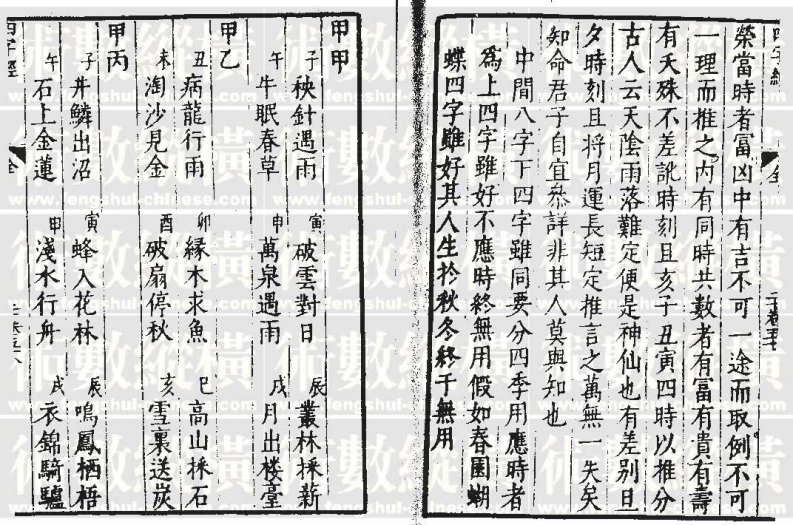 四字經
全
榮當時者富凶中有吉不可一途而取例不可
一理而推之内有同時共數者有富有貴有壽
有夭殊不差訛時刻且亥子丑寅四時以推分
古人云天陰雨落難定便是神仙也有差别旦
夕時刻且将月運長短定推言之萬無一失矣
知命君子自宜叅詳非其人莫與知也
中間八字下四字雖同要分四季用應時者
為上四字雖好不應時終無用假如春園蝴
蝶四字雖好其人生扵秋冬終于無用
甲甲
子 秧針遇雨 寅 破雲對日 辰 叢林採薪
午 牛眠春草 申 萬泉遇雨 戌 月出楼臺
甲乙
丑 病龍行雨 卯 緣木求魚 巳 高山採石
未 淘沙見金 酉 破扇停秋 亥 雪裏送炭
甲丙
子 井鱗出沼 寅 蜂入花林 辰 鳴鳳栖梧
午 石上金蓮 甲 淺水行舟 戌 衣錦騎驢
四字經
全
術數縱橫
www.fengshui-chinese.com